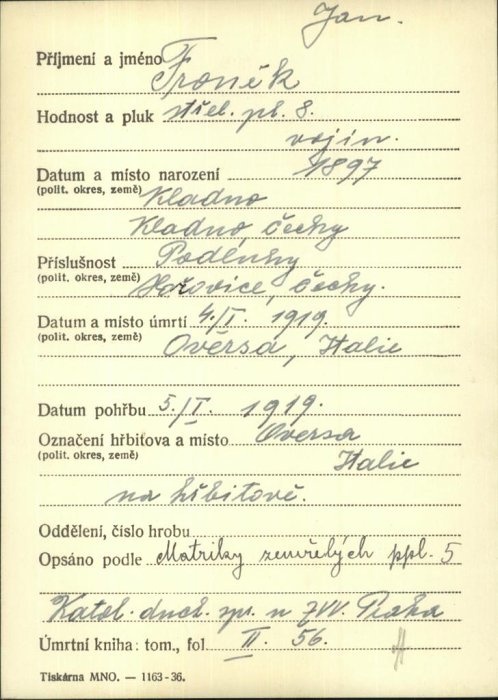 Jan.
Příjmení a jméno Froněk
Hodnost a pluk střel. pl. 8.
vojín.
Datum a místo narození 1897
(polit. okres, země) Kladno
Kladno, Čechy
Příslušnost Podluhy
(polit. okres, země) Hořovice, Čechy.
Datum a místo úmrtí 4./I. 1919.
(polit. okres, země) Oversa, Italie
Datum pohřbu 5./I. 1919.
Označení hřbitova a místo Oversa
(polit. okres, země) Italie
na hřbitově.
Oddělení, číslo hrobu
Opsáno podle Matriky zemřelých ppl. 5
Katol. duch. spr. u ZVV. Praha
Úmrtní kniha: tom., fol. II. 56.
Tiskárna MNO. — 1163-36.